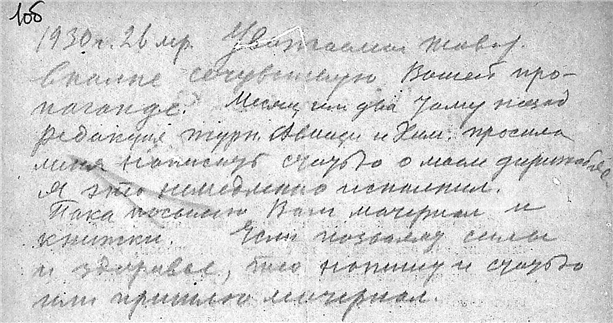 106
1930 г. 26 мр. Уважаемый товар.
вполне сочувствую Вашей про-
паганде. Месяц или два тому назад
редакция журн. Авиац и Хим. просила
меня написать статью о моем дирижабле
Я это немедленно исполнил.
Пока посылаю Вам материал и
книжки. Если позволят силы
и здоровье, то напишу и статью
или пришлю материал.